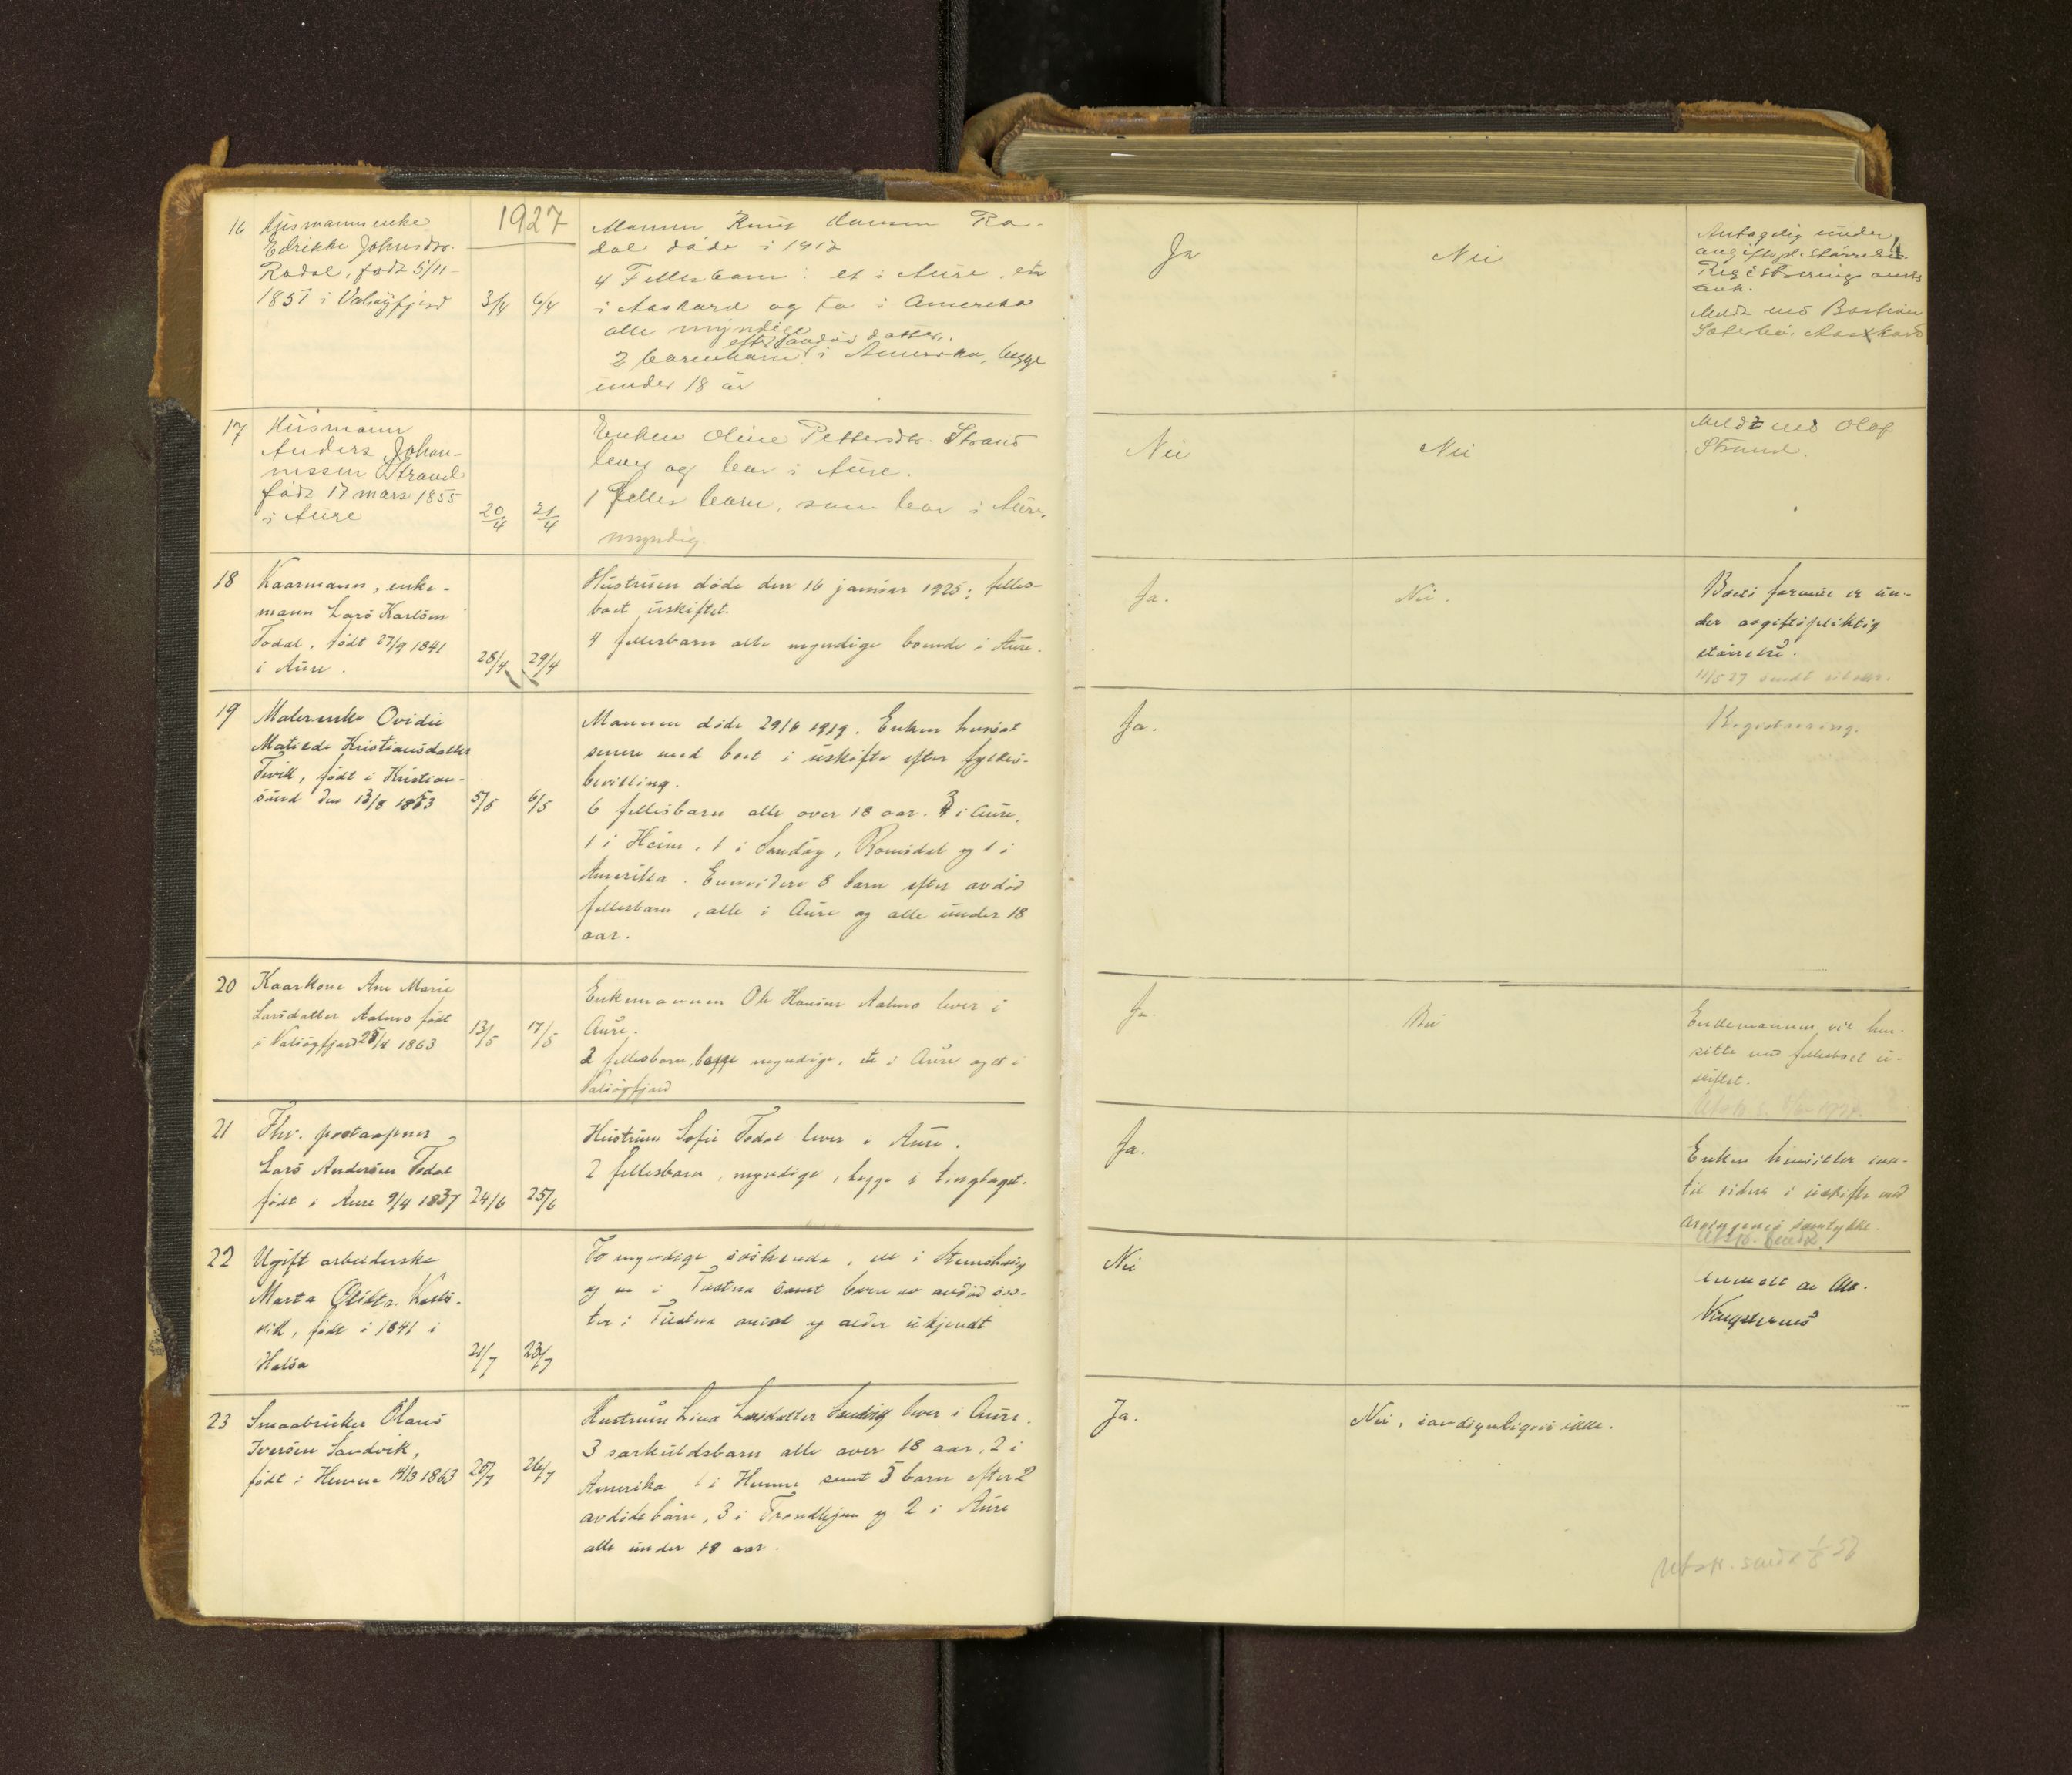 1927
16
Husmannsenke
Edrikke Johnsdtr.
Rodal, født 5/11-
1851 i Valsøyfjord
3/4
6/4
Mannen Knut Hansen Ro-
dal døde i 1912
4 Fellesbarn: et i Aure, et
i Aaskard og to i Amerika
alle myndige
efter avdød datter,
2 barnebarn i Amerika, begge
under 18 år
Ja
Nei
Antagelig under
avgiftspl. størrelse.
Registrering
Meldt ved
Aaskard
17
Husmann
Anders Johan-
nessen Strand
født 17 mars 1855
i Aure
20/4
21/4
Enken Oline Pettersdtr. Strand
lever og bor i Aure.
1 felles barn, som bor i Aure,
myndig.
Nei
Nei
Meldt ved Olaf
Strand.
18
Kaarmann, enke-
mann Lars Karlsen
Todal, født 27/9 1841
i Aure.
28/4
29/4
Hustruen døde den 16 januar 1925; felles-
boet uskiftet.
4 fellesbarn alle myndige boende i Aure.
Ja.
Nei.
Boets formue er un-
der avgiftspliktig
størrelse.
11/5 27 sendt
19
Malerenke Ovidie
Matilde Kristiansdatter
Tevik, født i Kristian-
sund den 13/8 1853
5/5
6/5
Mannen døde 29/6 1919. Enken hensat
senere med boet i uskifte efter fylkes-
bevilling.
6 fellesbarn alle over 18 aar. 3 i Aure,
1 i Heim, 1 i Sandøy, Romsdal og 1 i
Amerika. Enn videre 8 barn efter avdød
fellesbarn, alle i Aure og alle under 18
aar.
Ja.
Registrering.
20
Kaarkone Ane Marie
Larsdatter Aalmo født
i Valsøyfjord 25/4 1863
13/5
17/5
Enkemannen Ole Hansen Aalmo lever i
Aure.
2 fellesbarn, begge myndige, et i Aure og et i
Valsøyfjord
Ja.
Nei
Enkemannen vil hen-
sitte med fellesboet u-
skiftet.
21
Fhv. postaapner
Lars Andersen Todal
født i Aure 9/4 1837
24/6
25/6
Hustruen Sofie Todal lever i Aure.
2 fellesbarn, myndige, begge i tinglaget.
Ja.
Enken hensitter inn-
til videre i uskifte med
arvingenes samtykke.
Utskr. sendt.
22
Ugift arbeiderske
Marta Olsdtr.
vik, født i 1841 i
Halsa
21/7
23/7
To myndige søskende, en i Stemshaug
og en i Tustna samt barn av avdød søs-
ter i Tustna antal og alder ukjendt
Nei
Anmeldt av
23
Smaabruker Olaus
Iversen Sandvik,
født i Hemne 14/3 1863
25/7
26/7
Hustruen Lina Larsdatter Sandvik lever i Aure.
3 særkuldsbarn alle over 18 aar, 2 i
Amerika 1 i Hemne samt 5 barn efter 2
avdøde barn, 3 i Trondhjem og 2 i Aure
alle under 18 aar.
Ja.
Nei, sandsynligvis ikke.
Utskr. sendt